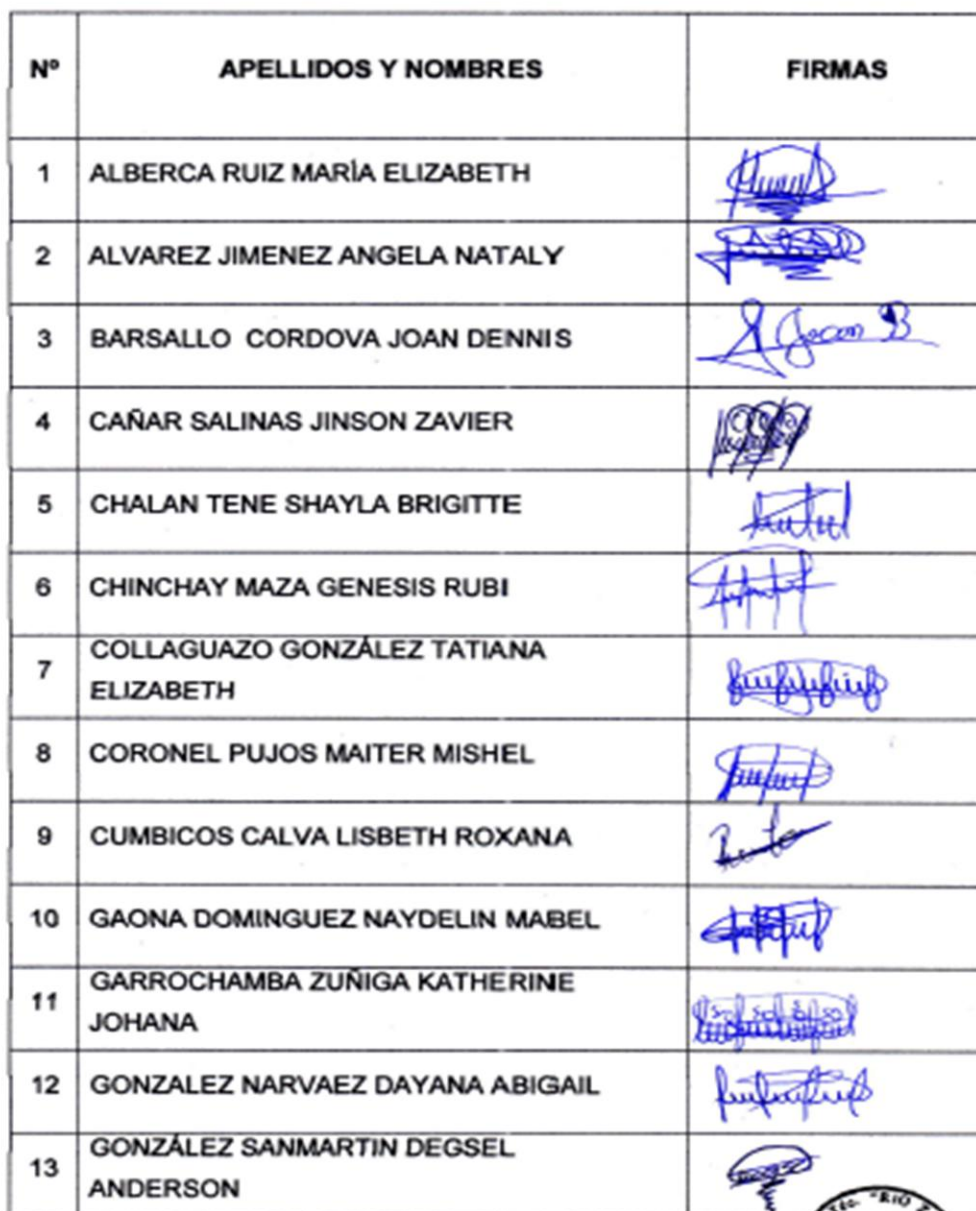 Nº APELLIDOS Y NOMBRES FIRMAS
1 ALBERCA RUIZ MARÍA ELIZABETH
2 ALVAREZ JIMENEZ ANGELA NATALY
3 BARSALLO CORDOVA JOAN DENNIS Joan B
4 CAÑAR SALINAS JINSON ZAVIER
5 CHALAN TENE SHAYLA BRIGITTE
6 CHINCHAY MAZA GENESIS RUBI
7 COLLAGUAZO GONZÁLEZ TATIANA
ELIZABETH
8 CORONEL PUJOS MAITER MISHEL
9 CUMBICOS CALVA LISBETH ROXANA
10 GAONA DOMINGUEZ NAYDELIN MABEL
11 GARROCHAMBA ZUÑIGA KATHERINE
JOHANA
12 GONZALEZ NARVAEZ DAYANA ABIGAIL
13 GONZÁLEZ SANMARTIN DEGSEL
ANDERSON
"RIO